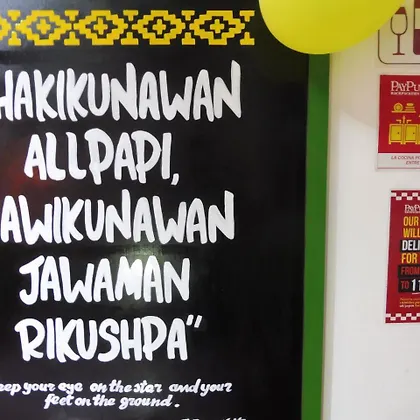 HAKIKUNAWAN
ALLPAPI,
AWIKUNAWAN
JAWAMAN
RIKUSHPA"
eep your eye on the star and your
feet on the ground.
PAYPU
LA COCINA
PAYPU
OUR
WILL
DELI
FOR
FROM
TO 11